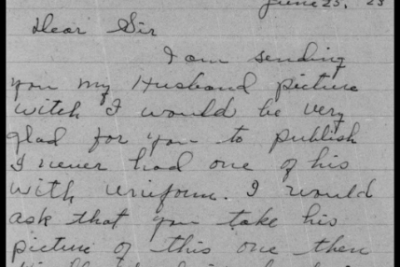 June 25, 23
Dear Sir
I am sending
you my Husband picture
witch I would be very
glad for you to publish
I never had one of his
with uniform. I would
ask that you take his
picture of this one then